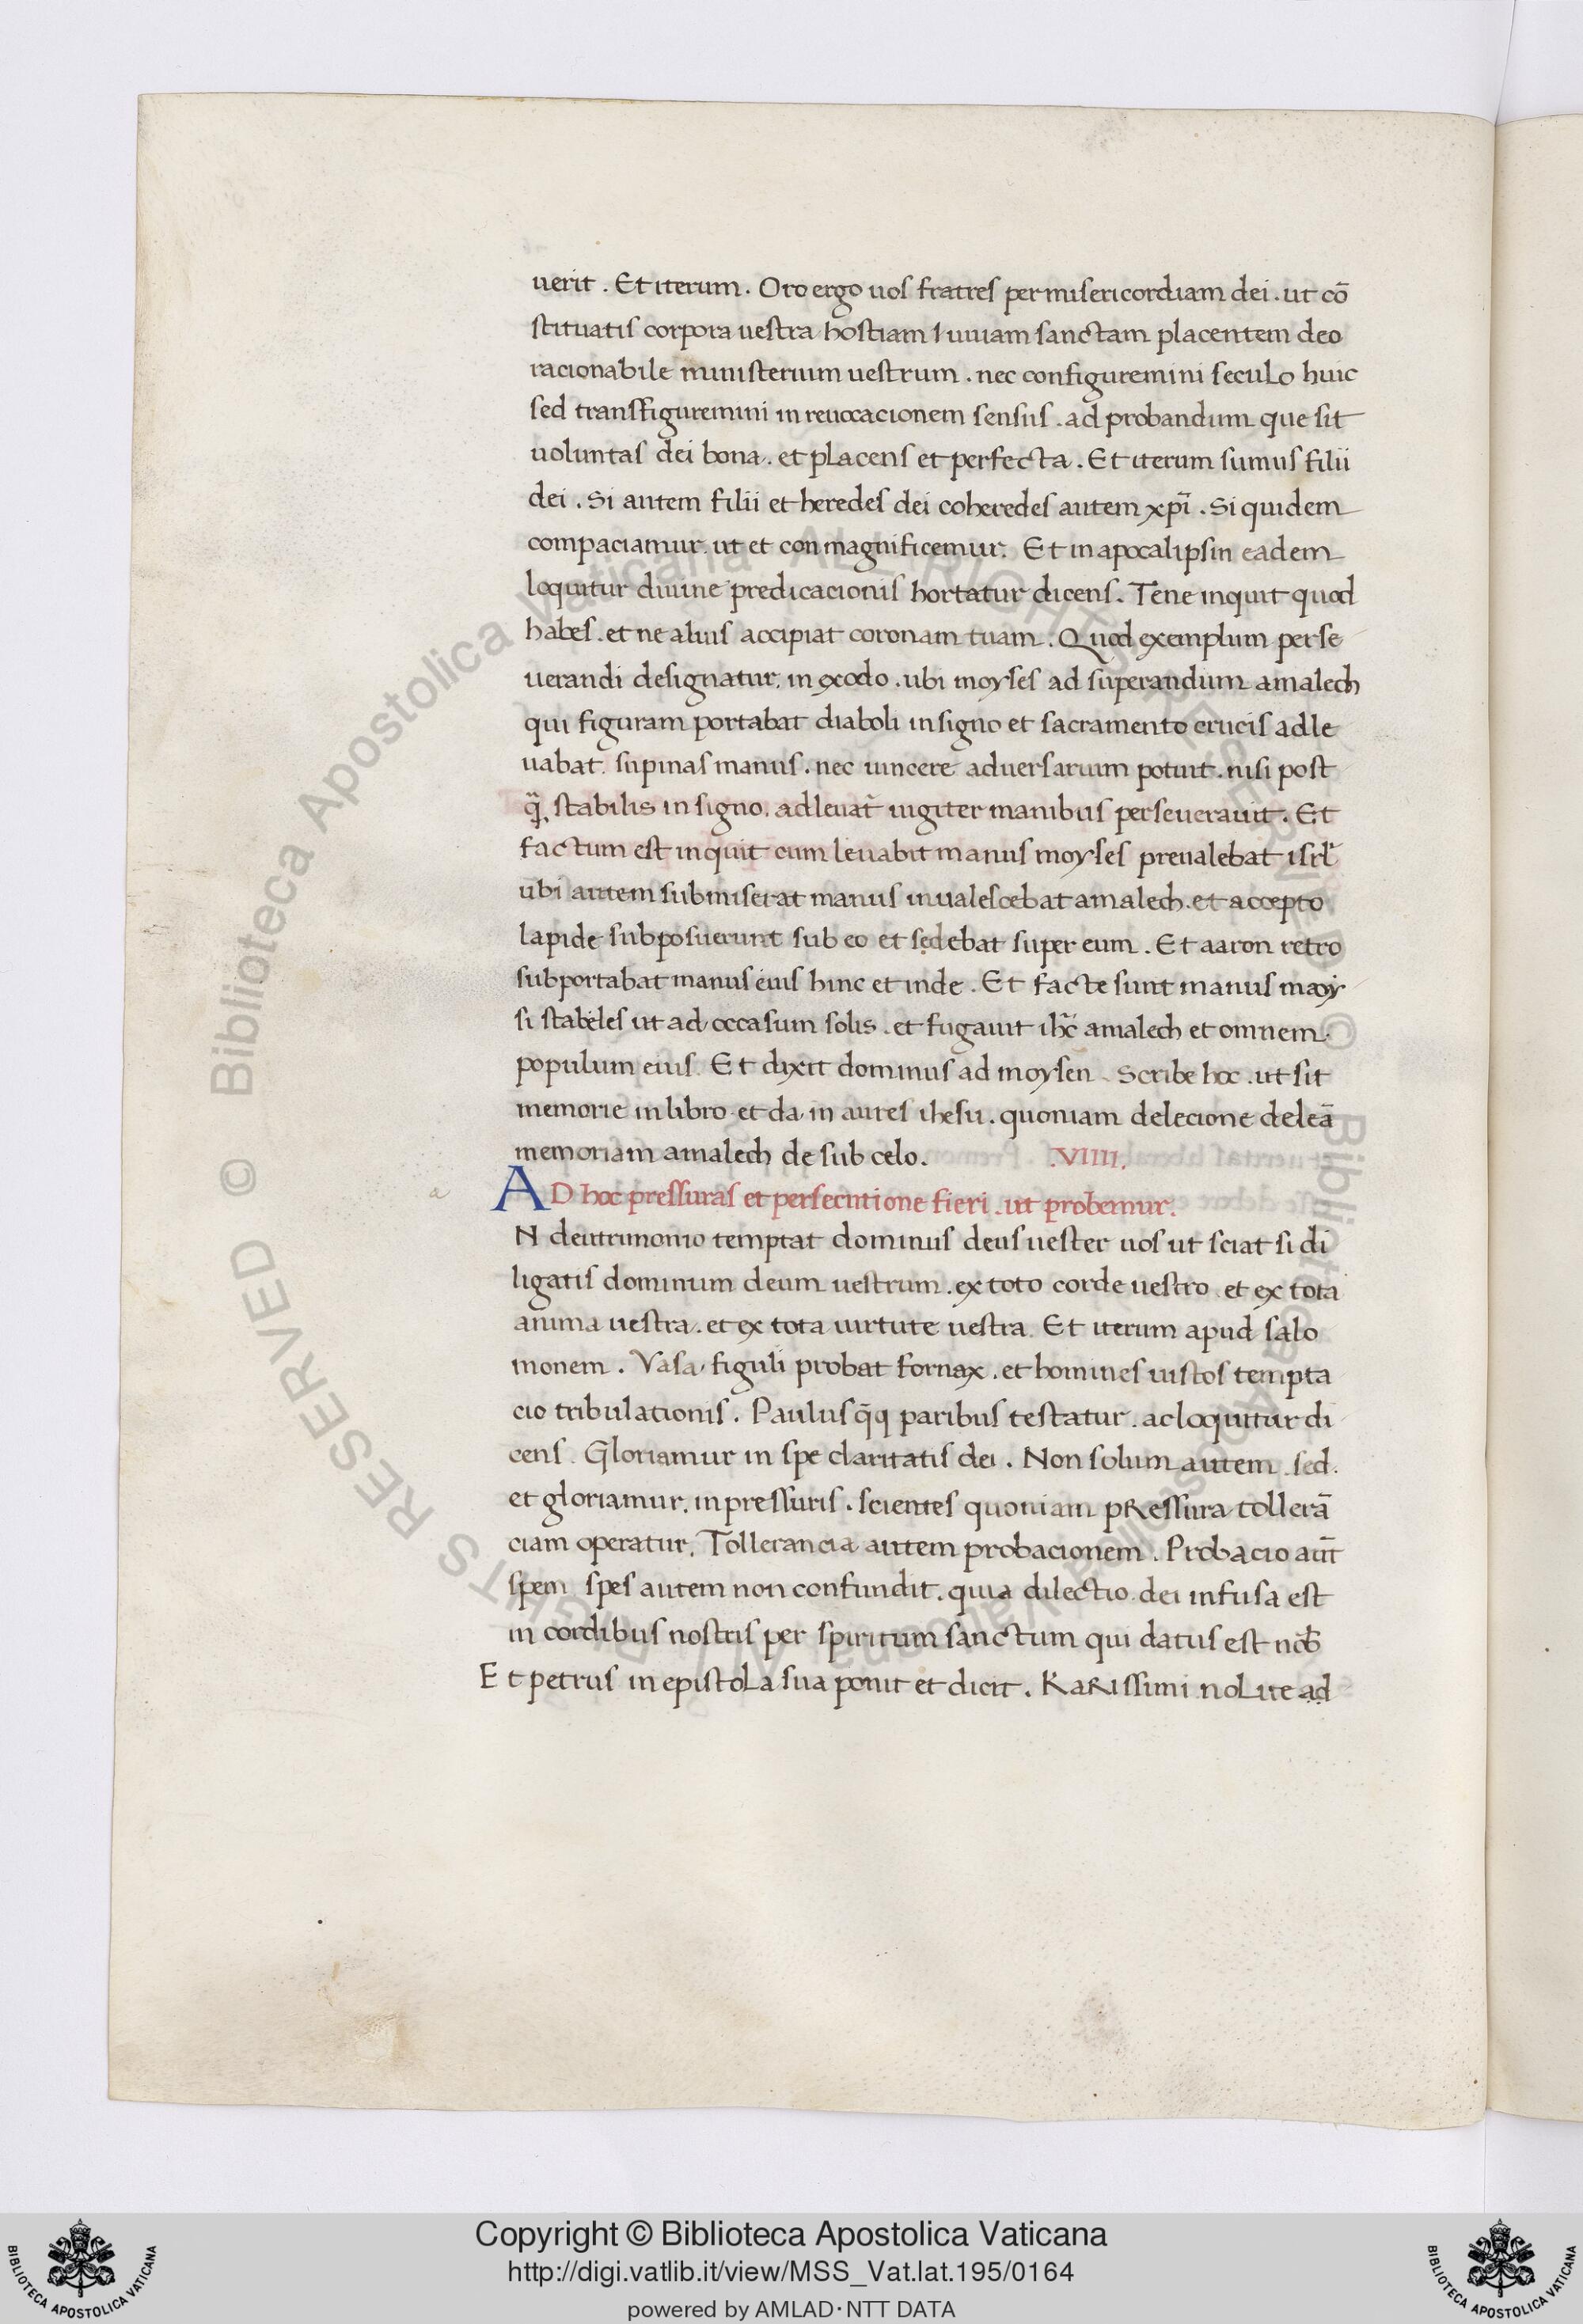 uerit . Et iterum . Oro ergo uos fratres per misericordiam dei . ut cō
stituatis corpora uestra hostiam uiuam sanctam placentem deo
racionabile ministerium uestrum . nec configuremini seculo huic
sed transfiguremini in reuocacionem sensus . ad probandum que sit
uoluntas dei bona . et placens et perfecta . Et iterum sumus filii
dei . Si autem filii et heredes dei coheredes autem xp̄i . Si quidem
compaciamur . ut et con magnificemur . Et in apocalipsin eadem
loquitur diuine predicacionis hortatur dicens . Tene inquit quod
habes . et ne alius accipiat coronam tuam . Quod exemplum perse
uerandi designatur . in exodo . ubi moyses ad superandum amalech
qui figuram portabat diaboli in signo et sacramento crucis adle
uabat . supinas manus . nec uincere aduersarium potuit . nisi post
q̄ . stabilis in signo . adleuat̄ iugiter manibus perseuerauit . Et
factum est inquit cum leuabit manus moyses preualebat isrl̄
ubi autem submiserat manus inualescebat amalech . et accepto
lapide subposuerunt sub eo et sedebat super eum . Et aaron retro
subportabat manus eius hinc et inde . Et facte sunt manus moy
si stabeles ut ad occasum solis . et fugauit ihc̄ amalech et omnem
populum eius . Et dixit dominus ad moysen . Scribe hoc . ut sit
memorie in libro et da in aures ihesu . quoniam delecione deleā
memoriam amalech de sub celo . .VIIII.
AD hoc pressuras et persecutione fieri . ut probemur .
N deutrunonio temptat dominus deus uester uos ut sciat si di
ligatis dominum deum uestrum . ex toto corde uestro . et ex tota
anima uestra . et ex tota uirtute uestra . Et iterum apud salo
monem . Vasa figuli probat fornax . et homines iustos tempta
cio tribulationis . Paulus q̄q paribus testatur . ac loquitur di
cens . Gloriamur in spe claritatis dei . Non solum autem . sed .
et gloriamur . in pressuris . scientes quoniam pressura tollerā
ciam operatur . Tollerancia autem probacionem . Probacio aut̄
spem spes autem non confundit . quia dilectio dei infusa est
in cordibus nostris per spiritum sanctum qui datus est nob̄
Et petrus in epistola sua ponit et dicit . Karissimi nolite ad
a
Copyright © Biblioteca Apostolica Vaticana
http://digi.vatlib.it/view/MSS_Vat.lat.195/0164
powered by AMLAD·NTT DATA
BIBLIOTECA APOSTOLICA VATICANA
BIBLIOTECA APOSTOLICA VATICANA
© Biblioteca Apostolica Vaticana ALL RIGHTS RESERVED © Biblioteca Apostolica Vaticana ALL RIGHTS RESERVED